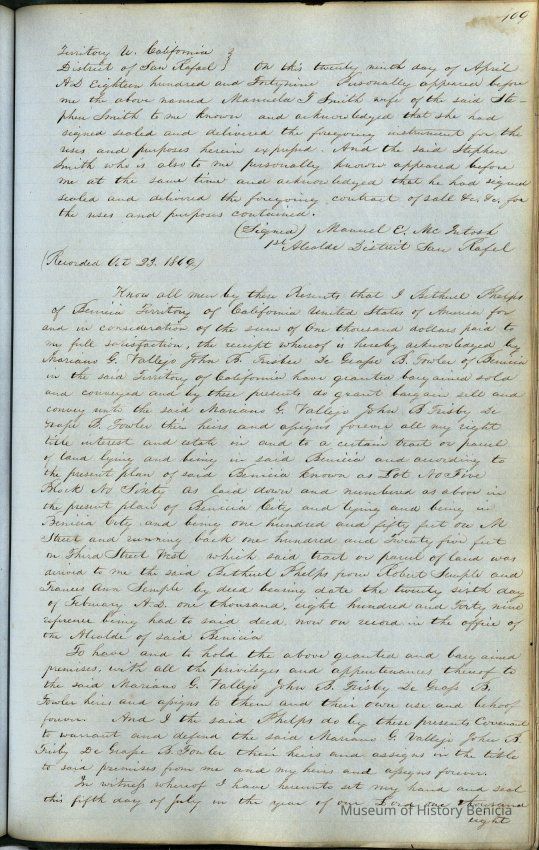 109
Territory U. California }
District of San Rafael } On this twenty ninth day of April
A.D Eighteen hundred and Fortynine Personally appeared before
me the above named Manuela T Smith wife of the said Ste-
phen Smith to me known and acknowledged that she had
signed sealed and delivered the foregoing instrument for the
uses and purposes herein expressed. And the said Stephen
Smith who is also to me personally known appeared before
me at the same time and acknowledged that he had signed
sealed and delivered the foregoing contract of sall &c. &c. for
the uses and purposes contained.
(Signed) Manuel E. Mc Intosh
1st Alcalde District San Rafel
(Recorded Oct 23. 1869)
Know all men by these Presents that I Bethuel Phelps
of Benicia Territory of California United States of America for
and in consideration of the sum of One thousand dollars paid to
my full satisfaction, the receipt whereof is hereby acknowledged by
Mariano G. Vallejo John B. Frisbie De Grasse B. Fowler of Benicia
in the said Territory of California have granted bargained sold
and conveyed and by these presents do grant bargain sell and
convey unto the said Mariano G. Vallejo John B Frisby De
Grasse B. Fowler their heirs and assigns forever all my right
title interest and estate in and to a certain tract or parcel
of land lying and being in said Benicia and according to
the present plan of said Benicia known as Lot No Five
Block No Sixty as laid down and numbered as above in
the present plan of Benicia City and lying and being in
Benicia City and being one hundred and fifty feet on M
Street and running back one hundred and twenty five feet
on Third Street West which said tract or parcel of land was
derived to me the said Bethuel Phelps from Robert Semple and
Frances Ann Semple by deed bearing date the twenty sixth day
of February A.D. one thousand, eight hundred and Forty nine
reference being had to said deed now on record in the office of
the Alcalde of said Benicia
To have and to hold the above granted and bargained
premises, with all the privileges and appurtenances thereof to
the said Mariano G. Vallejo John B. Frisby De Grass B.
Fowler heirs and assigns to them and their own use and behoof
forever. And I the said Phelps do by these presents Covenant
to warrant and defend the said Mariano G. Vallejo John B.
Frisby De Grasse B. Fowler their heirs and assigns in the title
to said premises from me and my heirs and assigns forever.
In witness whereof I have hereunto set my hand and seal
this fifth day of July in the year of our Lord one thousand
eight
Museum of History Benicia